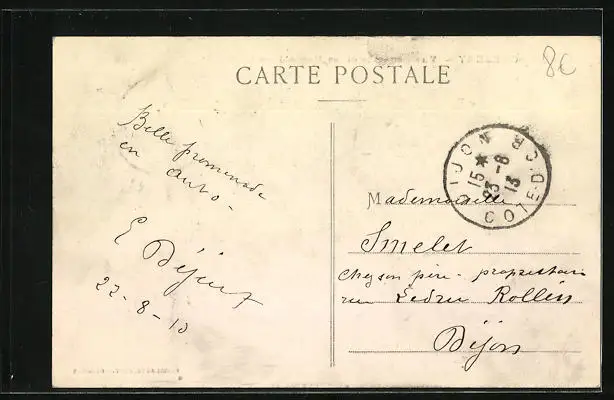 CARTE POSTALE
8€
Belle promenade
en auto -
E Déjeux
22-8-13
DIJON * COTE-D'OR
15 *
23 -8
13
Mademoiselle
Smelet
chez son père - propriétaire
rue Ledru Rollin
Dijon